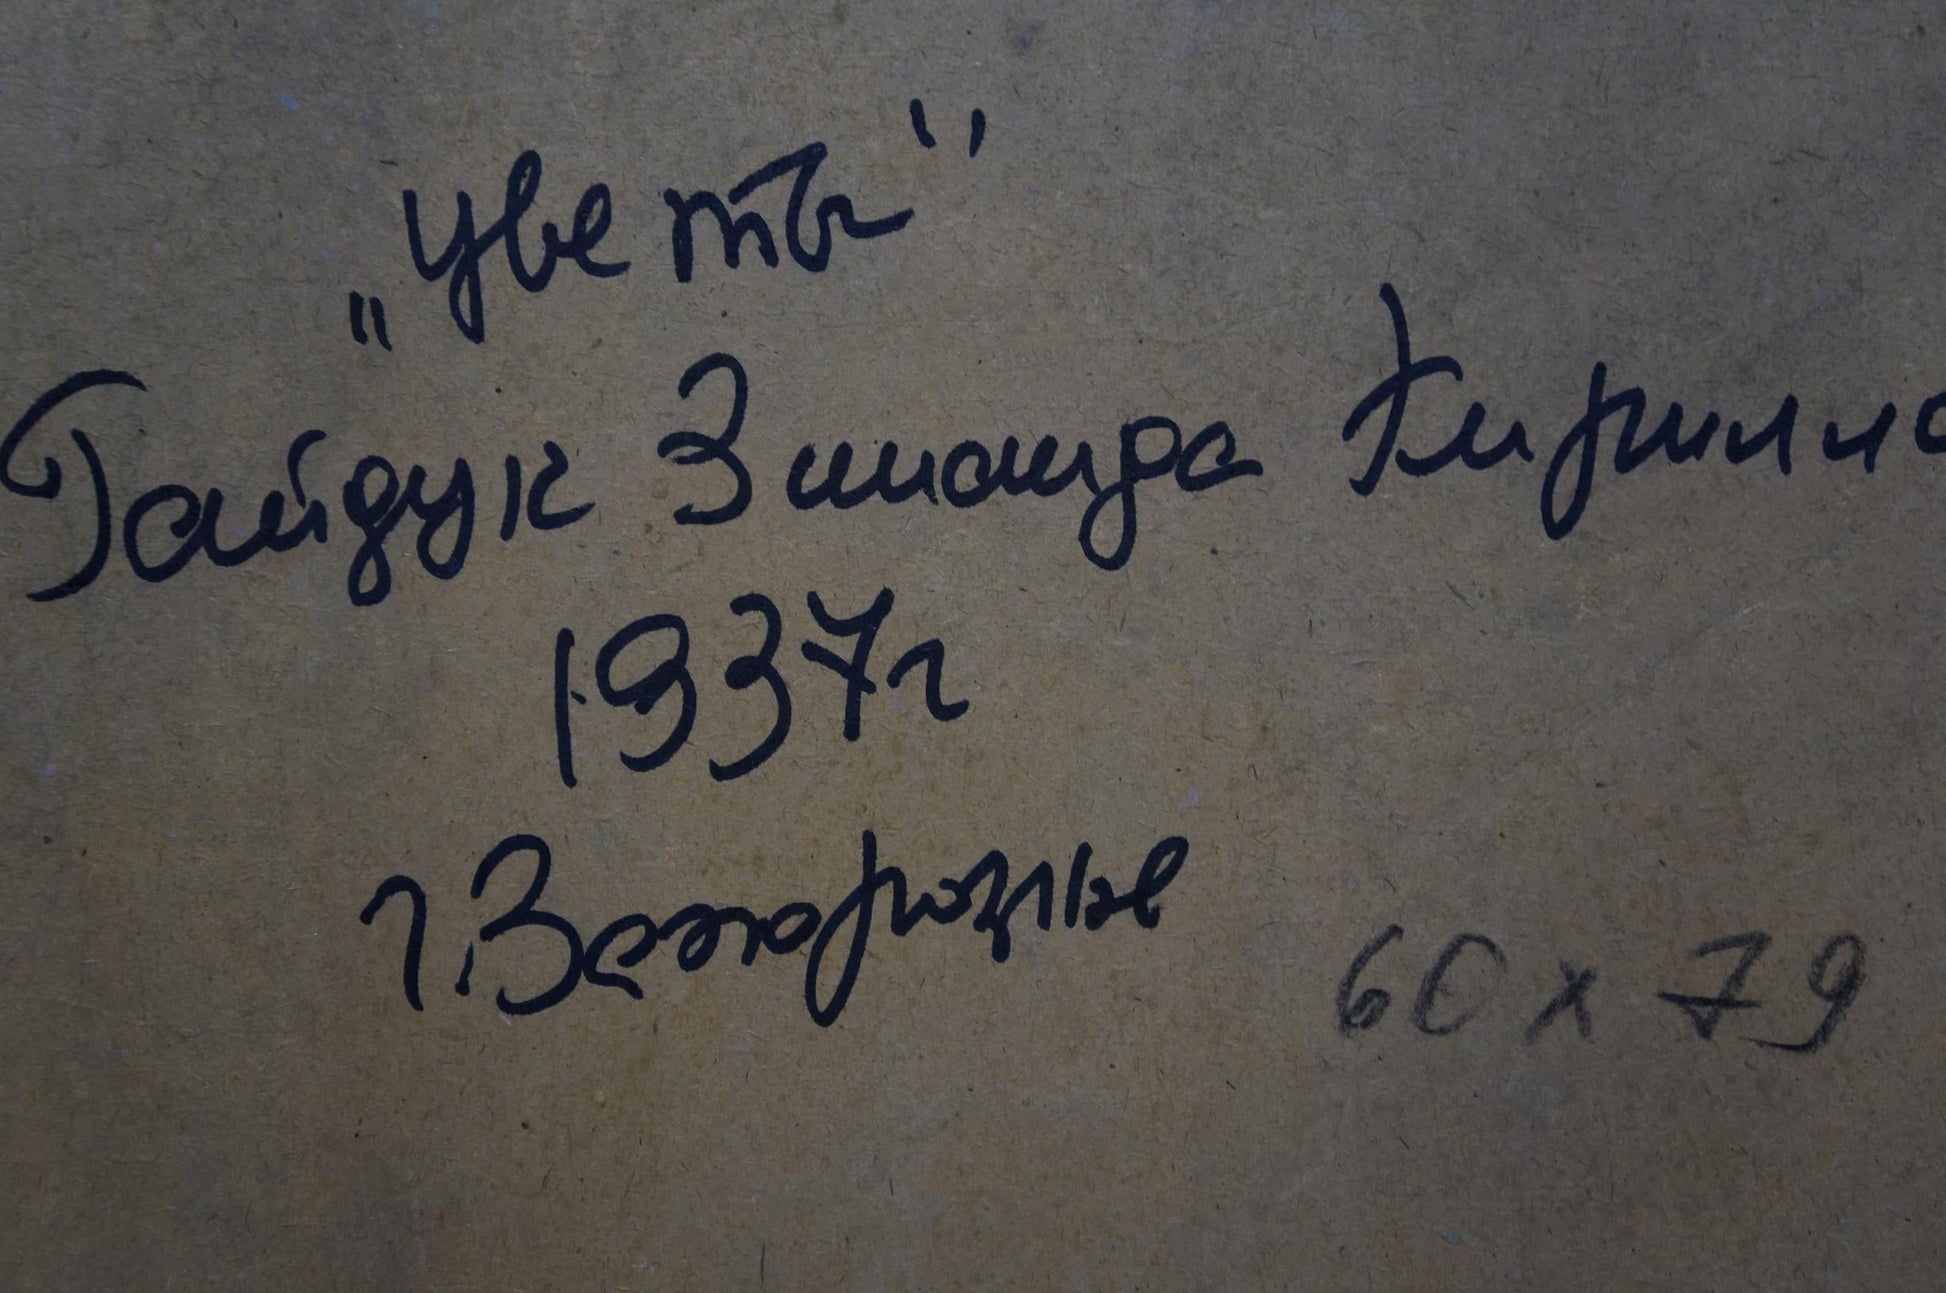 „цветы"
Гайдук Зинаида Кирилло
1937г
г. Запорожье
60 x 79